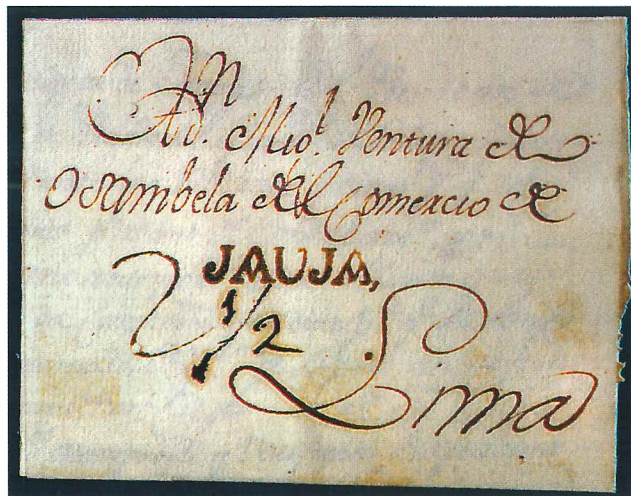 A Dn
Mig.l Ventura de
Osambela del Comercio de
JAUJA,
1/2
Lima